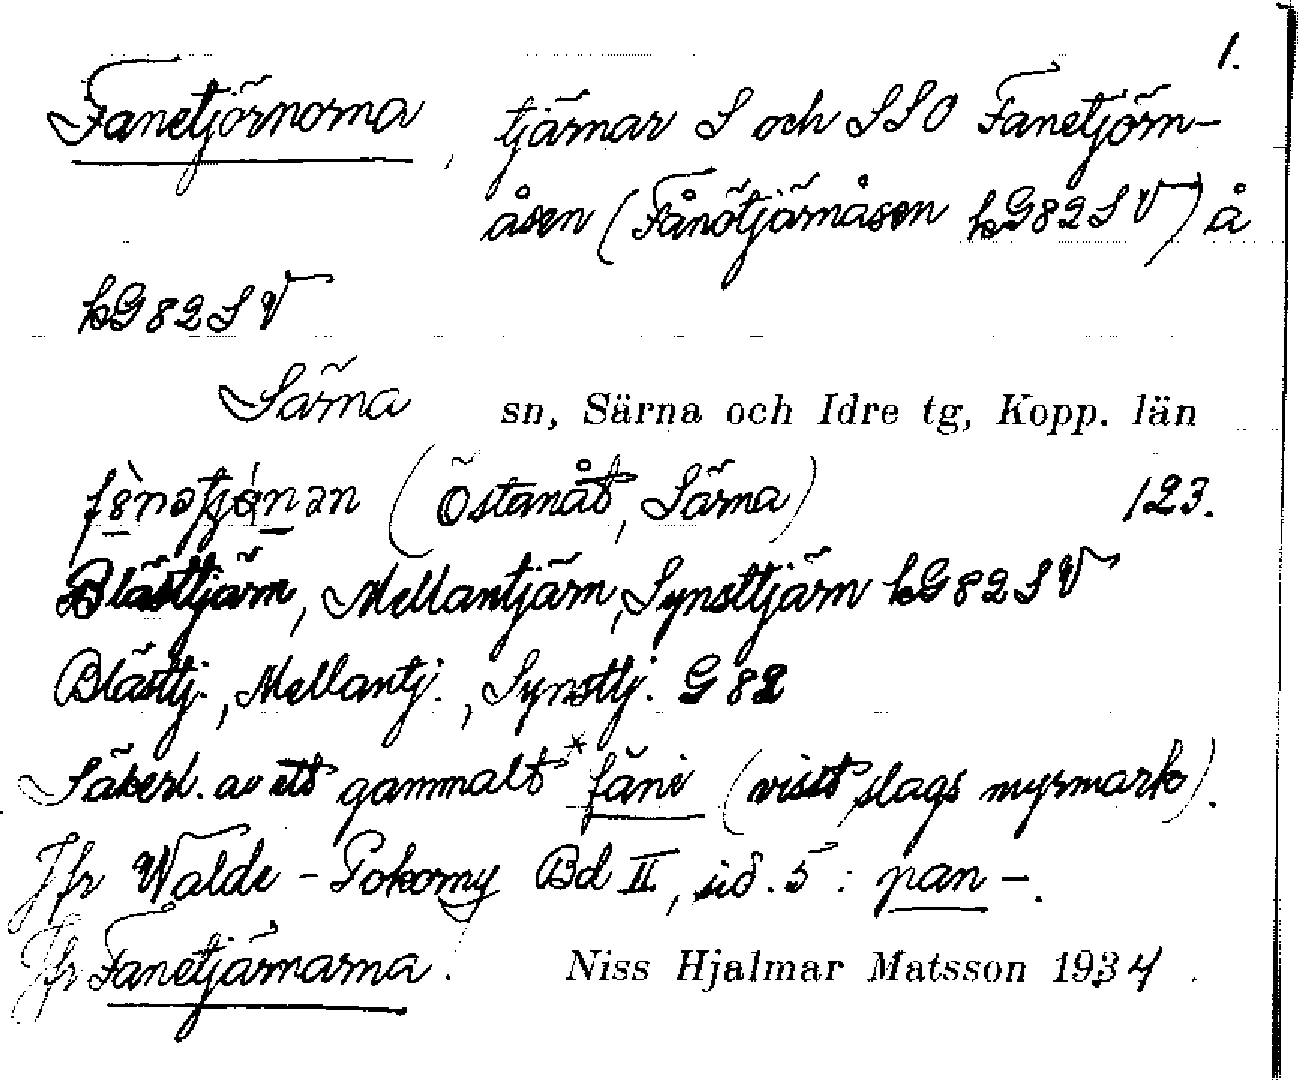 1.
Fanetjörnorna, tjärnar S och SSO Fanetjörn-
åsen (Fånötjärnåsen kG82SV) å
kG82SV
Särna sn, Särna och Idre tg, Kopp. län
(Östanåt, Särna) 123.
Blästtjärn, Mellantjärn, Synsttjärn kG82SV
Blästtj., Mellantj., Synsttj. G82
Säkerl. av ett gammalt *fäni (visst slags myrmark).
Jfr Walde-Pokorny Bd II, sid. 5: pan-.
Jfr Fanetjärnarna. Niss Hjalmar Matsson 1934.